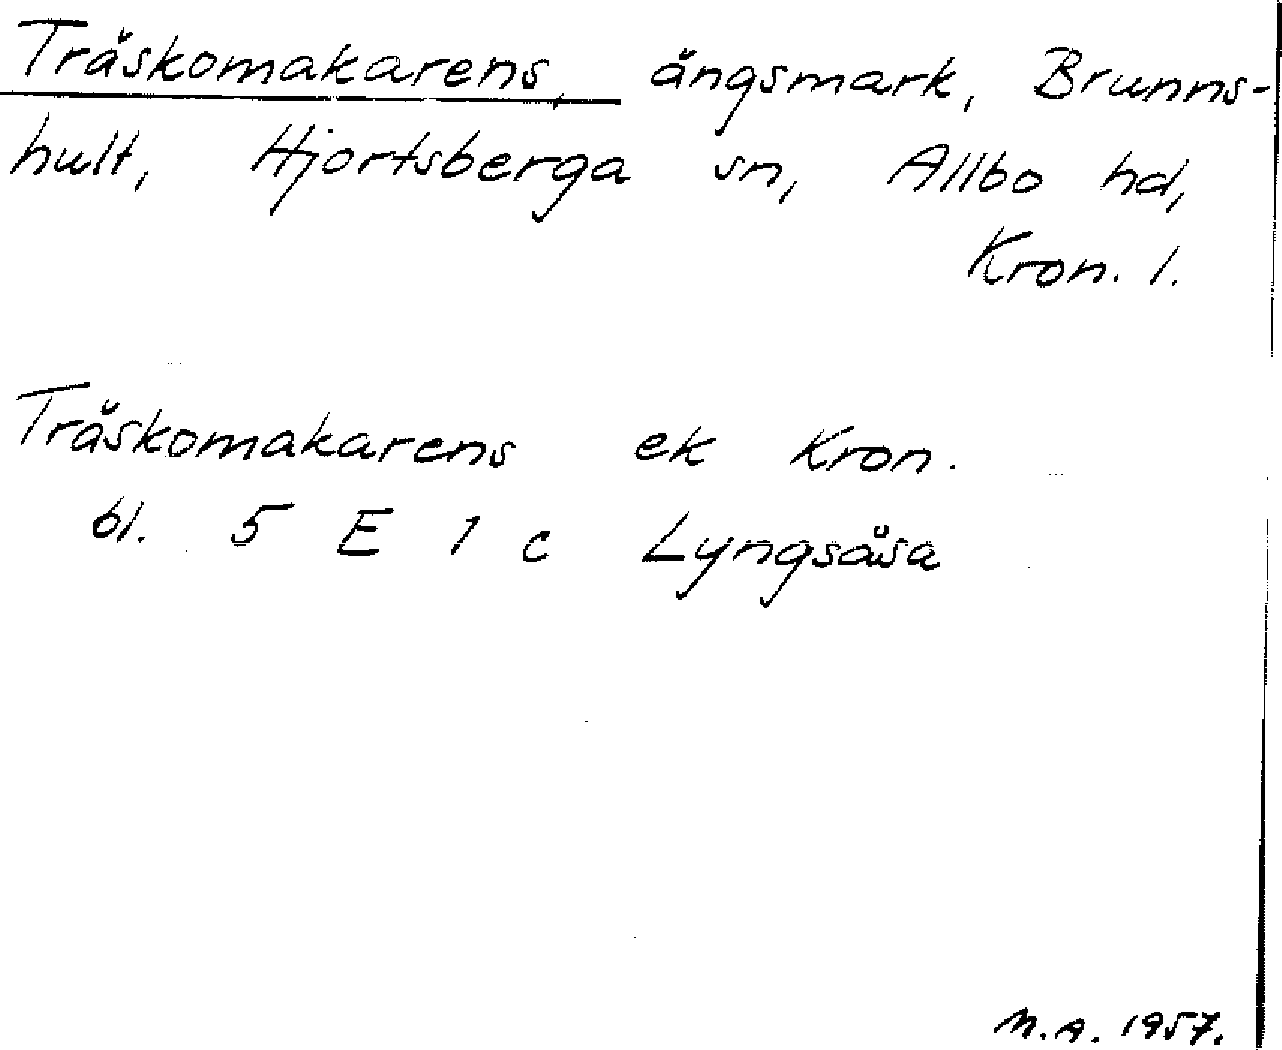 Träskomakarens, ängsmark, Brunns-
hult, Hjortsberga sn, Allbo hd,
Kron. l.
Träskomakarens ek Kron.
bl. 5 E 1 c Lyngsåsa
M.A. 1957.